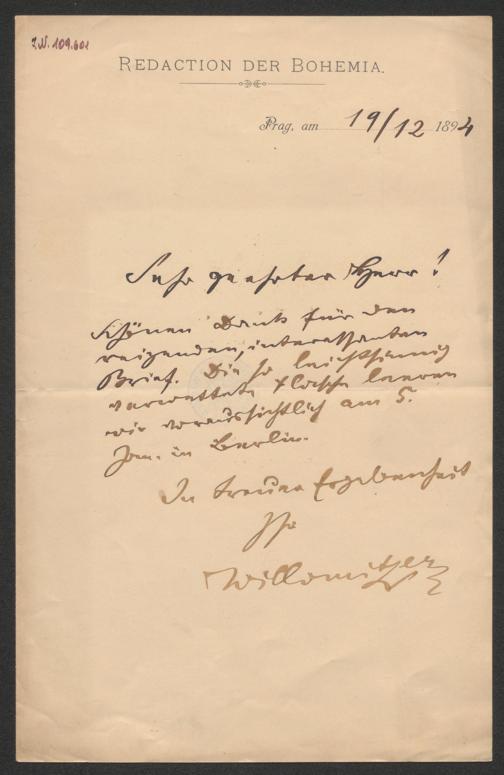 I.N. 109.601
REDACTION DER BOHEMIA.
Prag, am 19/12 1894
Sehr geehrter Herr!
Schönen Dank für den
reizenden, interessanten
Brief. Die so leichtsinnig
verwettete Flasche leeren
wir voraussichtlich am 5.
Jan. in Berlin.
In treuer Ergebenheit
Ihr
Willomitzer